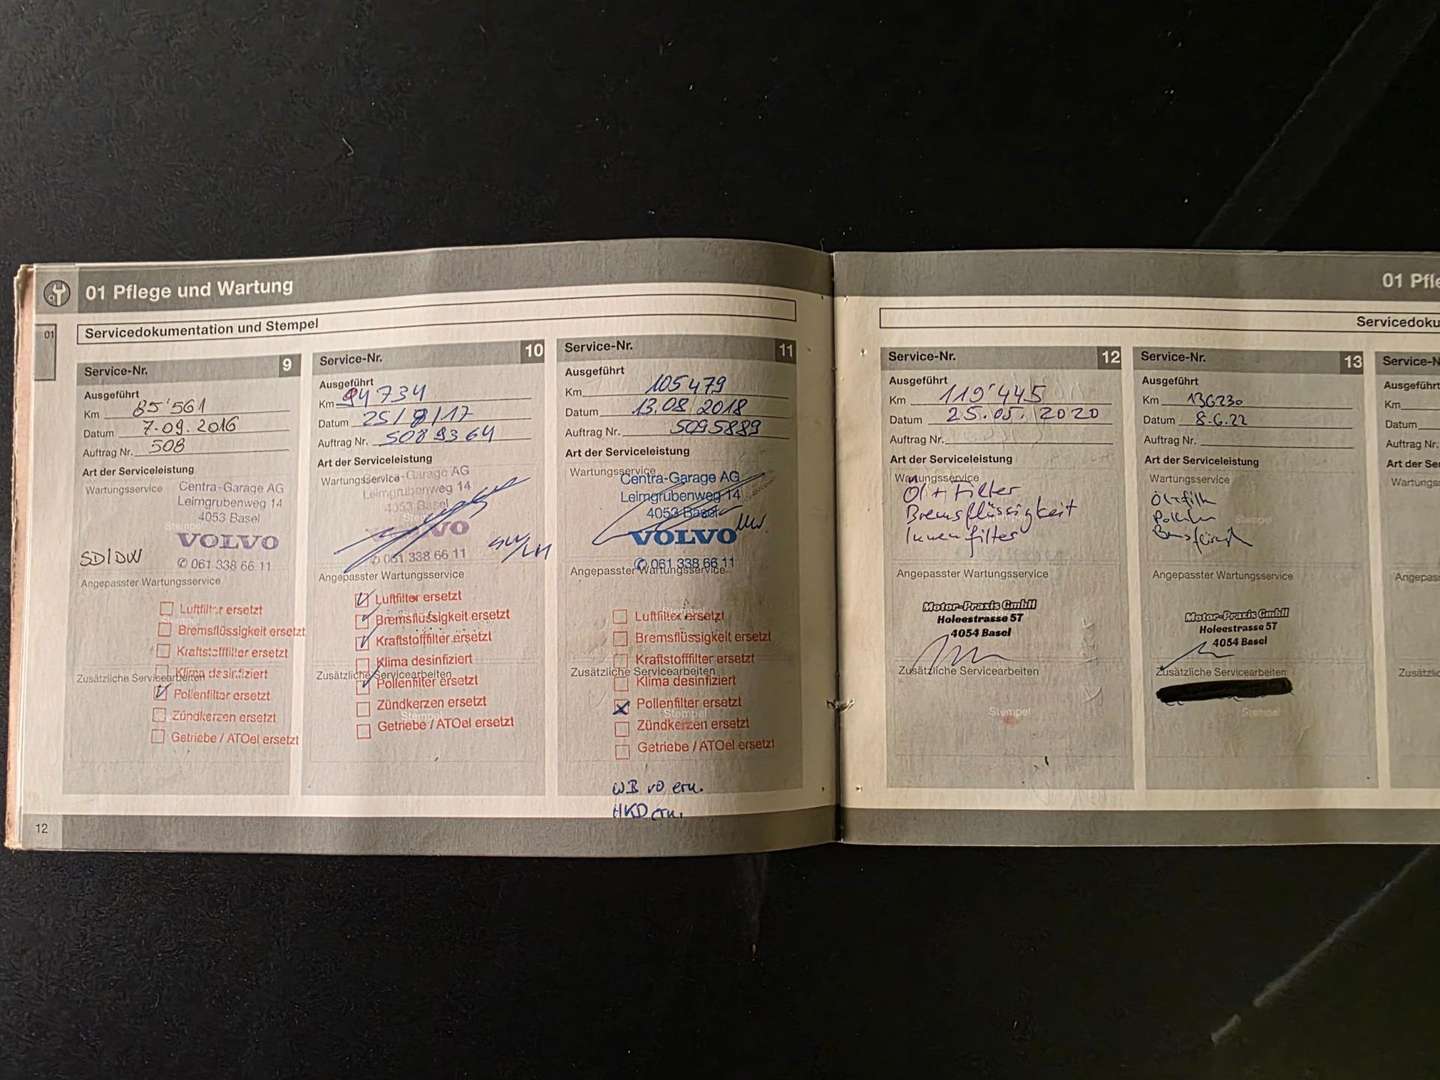 01 Pflege und Wartung
01
Servicedokumentation und Stempel
Service-Nr. 9
Ausgeführt
Km 85'561
Datum 7.09.2016
Auftrag Nr. 508
Art der Serviceleistung
Wartungsservice
Centra-Garage AG
Leimgrubenweg 14
4053 Basel
Stempel
VOLVO
SD/DW
✆ 061 338 66 11
Angepasster Wartungsservice
Luftfilter ersetzt
Bremsflüssigkeit ersetzt
Kraftstofffilter ersetzt
Klima desinfiziert
Zusätzliche Servicearbeiten
Pollenfilter ersetzt
Zündkerzen ersetzt
Getriebe / ATOel ersetzt
12
Service-Nr. 10
Ausgeführt
Km 94734
Datum 25/8/17
Auftrag Nr. 5089364
Art der Serviceleistung
Wartungsservice
Centra-Garage AG
Leimgrubenweg 14
VOLVO
✆ 061 338 66 11
Angepasster Wartungsservice
Luftfilter ersetzt
Bremsflüssigkeit ersetzt
Kraftstofffilter ersetzt
Klima desinfiziert
Zusätzliche Servicearbeiten
Pollenfilter ersetzt
Zündkerzen ersetzt
Stempel
Getriebe / ATOel ersetzt
Service-Nr. 11
Ausgeführt
Km 105479
Datum 13.08.2018
Auftrag Nr. 5095889
Art der Serviceleistung
Wartungsservice
Centra-Garage AG
Leimgrubenweg 14
4053 Basel
VOLVO
✆ 061 338 66 11
Angepasster Wartungsservice
Stempel
Luftfilter ersetzt
Bremsflüssigkeit ersetzt
Kraftstofffilter ersetzt
Zusätzliche Servicearbeiten
Klima desinfiziert
Pollenfilter ersetzt
Stempel
Zündkerzen ersetzt
Getriebe / ATOel ersetzt
WB vo ern.
HKD ern.
01 Pfle
Servicedoku
Service-Nr. 12
Ausgeführt
Km 119'445
Datum 25.05.2020
Auftrag Nr.
Art der Serviceleistung
Wartungsservice
Öl + Filter
Bremsflüssigkeit
Innenfilter
Angepasster Wartungsservice
Motor-Praxis GmbH
Holeestrasse 57
4054 Basel
Zusätzliche Servicearbeiten
Stempel
Service-Nr. 13
Ausgeführt
Km 136230
Datum 8.6.22
Auftrag Nr.
Art der Serviceleistung
Wartungsservice
Stempel
Angepasster Wartungsservice
Motor-Praxis GmbH
Holeestrasse 57
4054 Basel
Zusätzliche Servicearbeiten
Stempel
Service-N
Ausgeführt
Km
Datum
Auftrag Nr.
Art der Ser
Wartungs
Angepass
Zusätzlic